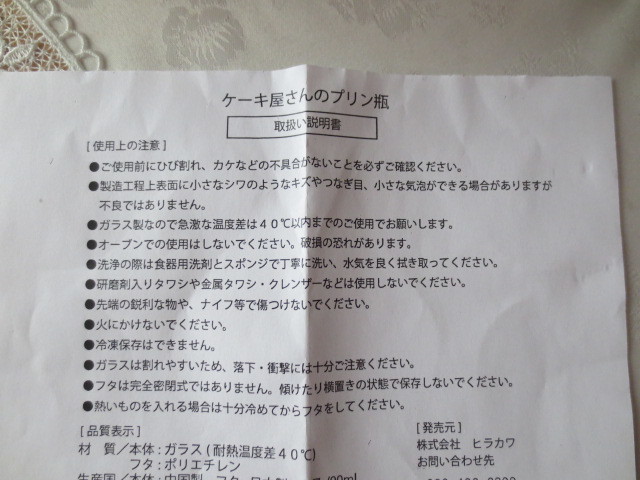 ケーキ屋さんのプリン瓶
取扱い説明書
[使用上の注意]
●ご使用前にひび割れ、カケなどの不具合がないことを必ずご確認ください。
●製造工程上表面に小さなシワのようなキズやつなぎ目、小さな気泡ができる場合がありますが
不良ではありません。
●ガラス製なので急激な温度差は40℃以内までのご使用でお願いします。
●オーブンでの使用はしないでください。破損の恐れがあります。
●洗浄の際は食器用洗剤とスポンジで丁寧に洗い、水気を良く拭き取ってください。
●研磨剤入りタワシや金属タワシ・クレンザーなどは使用しないでください。
●先端の鋭利な物や、ナイフ等で傷つけないでください。
●火にかけないでください。
●冷凍保存はできません。
●ガラスは割れやすいため、落下・衝撃には十分ご注意ください。
●フタは完全密閉式ではありません。傾けたり横置きの状態で保存しないでください。
●熱いものを入れる場合は十分冷めてからフタをしてください。
[品質表示]
材 質/本体:ガラス(耐熱温度差40℃)
フタ:ポリエチレン
生産国/本体:中国製
[発売元]
株式会社 ヒラカワ
お問い合わせ先